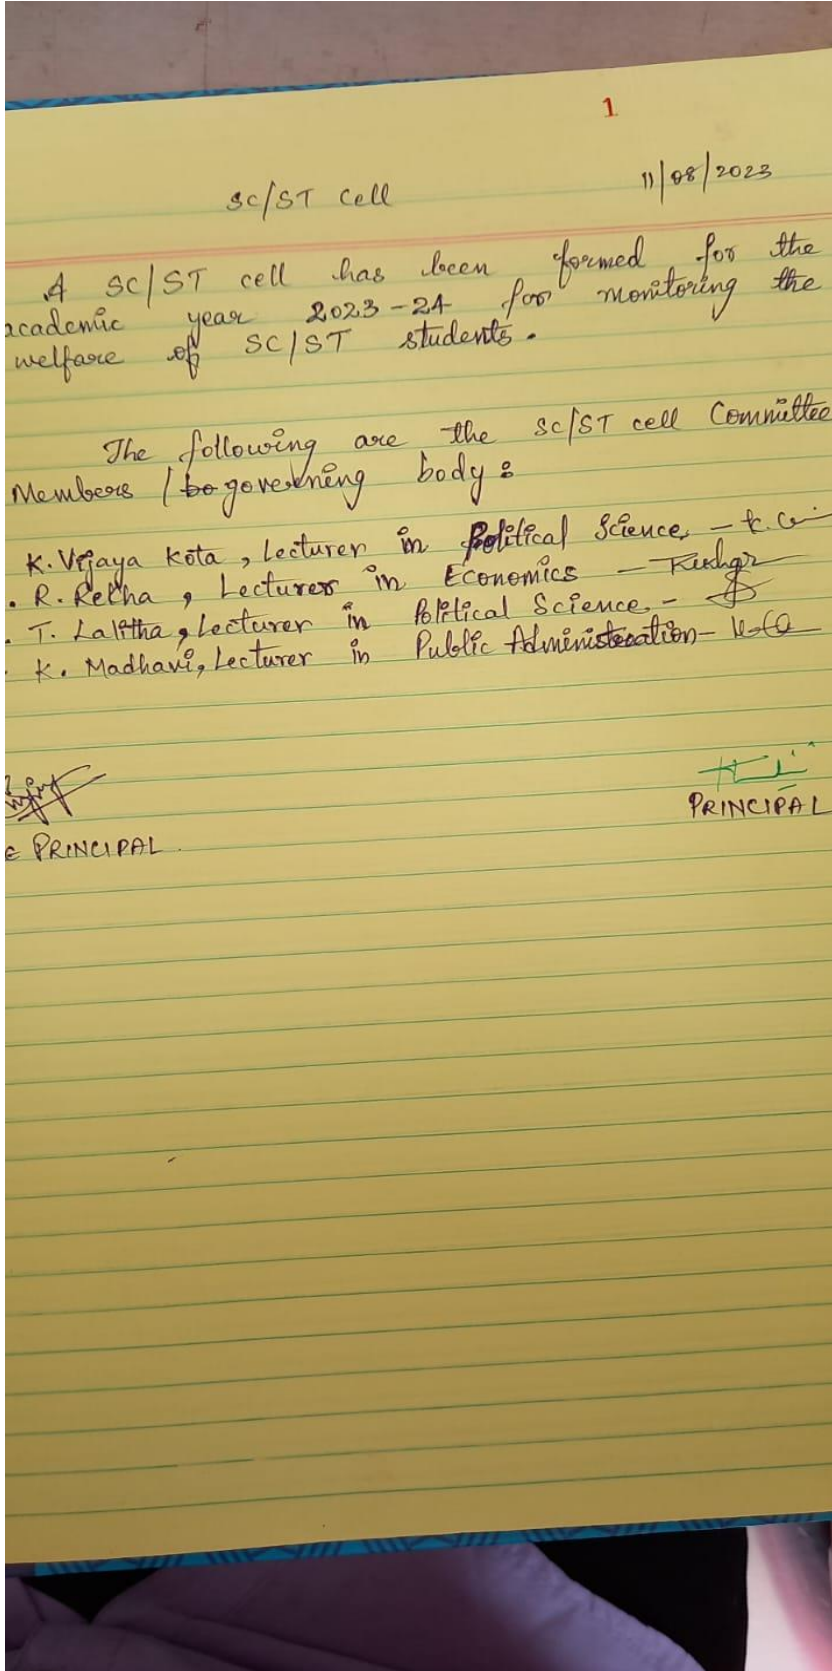 1
SC/ST Cell 11/08/2023
A SC/ST cell has been formed for the
academic year 2023-24 for monitoring the
welfare of SC/ST students.
The following are the SC/ST cell Committee
Members / bo governing body :
K. Vijaya Kota, Lecturer in Political Science, -
. R. Rekha, Lecturer in Economics -
. T. Lalitha, Lecturer in Political Science, -
. K. Madhavi, Lecturer in Public Administration -
PRINCIPAL
E PRINCIPAL.